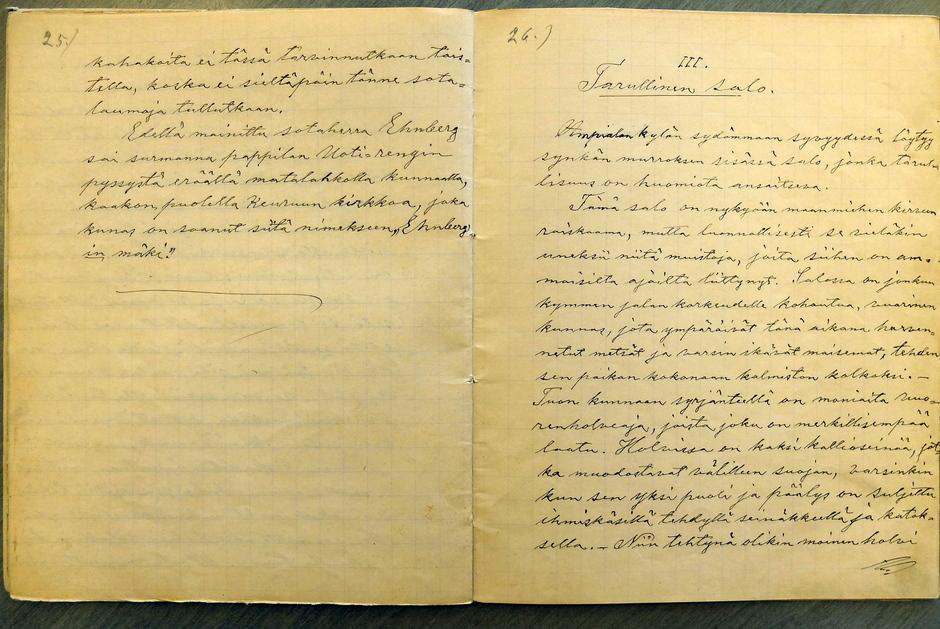 25.)
kahakoita ei tässä tarvinnutkaan tais=
tella, koska ei sieltäpäin tänne sota=
laumoja tullutkaan.
Edellä mainittu sotaherra Ehnberg
sai surmansa pappilan Uoti-rengin
pyssystä eräällä matalahkolla kunnaalla,
kaakon puolella Keuruun kirkkoa, joka
kunnas on saanut siitä nimekseen „Ehnberg
in mäki".
26.)
III.
Tarullinen salo.
Ampialan kylän sydänmaan syvyydessä löytyy
synkän murroksen sisässä salo, jonka tarul-
lisuus on huomiota ansaitseva.
Tämä salo on nykyään maanmiehen kirveen
raiskaama, mutta luonnollisesti se vieläkin
uneksii niitä muistoja, joita siihen on am=
moisilta ajoilta liittynyt. Salossa on jonkun
kymmen jalan korkeudelle kohoutua, vuorinen
kunnas, jota ympäröivät tänä aikana harven=
netut metsät ja varsin ikävät maisemat, tehden
sen paikan kokonaan kalmiston kolkoksi. —
Tuon kunnaan syrjänteellä on moniaita vuo=
renholveja, joista joku on merkillisempää
laatu. Holvissa on kaksi kallioseinää, jot
ka muodostavat välilleen suojan, varsinkin
kun sen yksi puoli ja päälys on suljettu
ihmiskäsillä tehdyllä seinäkkeellä ja katok=
sella. — Niin tehtynä olikin moinen holvi